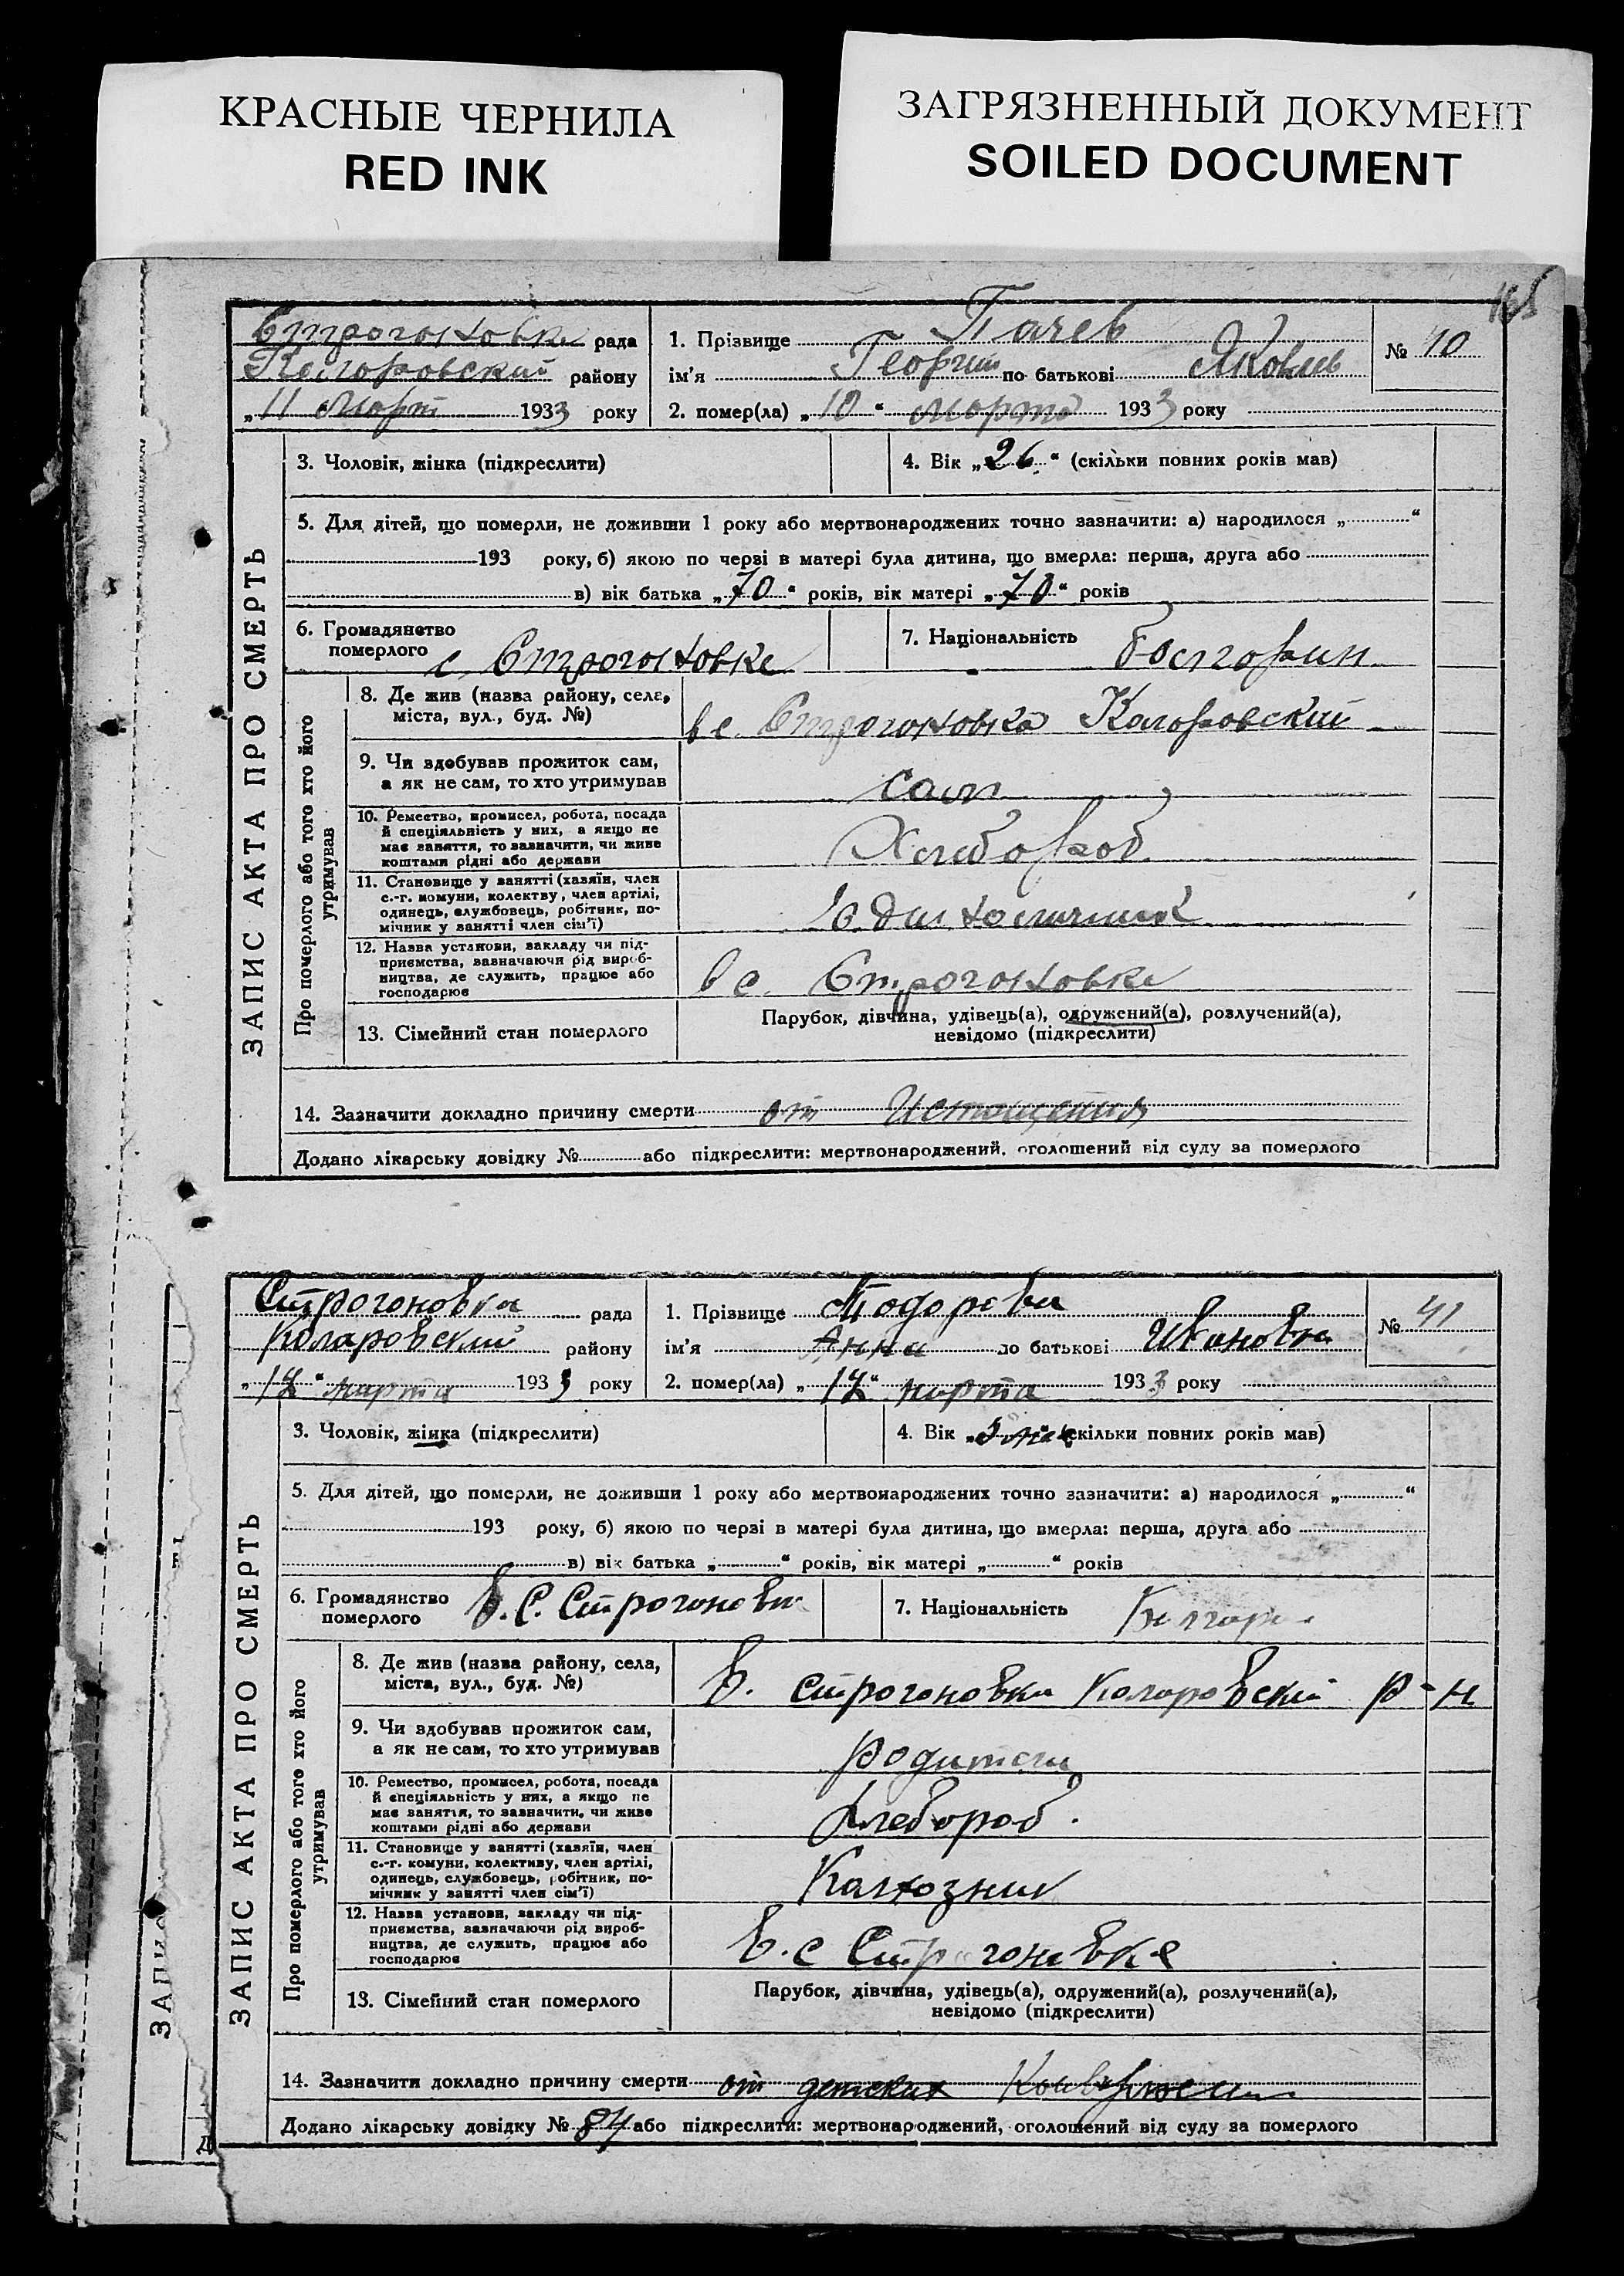 КРАСНЫЕ ЧЕРНИЛА
RED INK
ЗАГРЯЗНЕННЫЙ ДОКУМЕНТ
SOILED DOCUMENT
Строгоновка рада
Коларовский району
„11 Март 1933 року
1. Прізвище Пачев
ім'я Георгий по батькові Яковлев
2. помер(ла) „10“ марта 1933 року
№ 40
ЗАПИС АКТА ПРО СМЕРТЬ
3. Чоловік, жінка (підкреслити)
4. Вік „26“ (скільки повних років мав)
5. Для дітей, що померли, не доживши 1 року або мертвонароджених точно зазначити: а) народилося „ “
193 року, б) якою по черзі в матері була дитина, що вмерла: перша, друга або
в) вік батька „70“ років, вік матері „70“ років
6. Громадянство
померлого с Строгоновке
7. Національність болгорин
Про померлого або того хто його
утримував
8. Де жив (назва району, села,
міста, вул., буд. №)
в с. Строгоновка Колоровский
9. Чи здобував прожиток сам,
а як не сам, то хто утримував
сам
10. Ремество, промисел, робота, посада
й спеціяльність у них, а якщо не
має заняття, то зазначити, чи живе
коштами рідні або держави
Хлебороб
11. Становище у занятті (хазяїн, член
с.-г. комуни, колективу, член артілі,
одинець, службовець, робітник, по-
мічник у занятті член сім'ї)
12. Назва установи, закладу чи під-
приємства, зазначаючи рід вироб-
ництва, де служить, працює або
господарює
в с. Строгоновке
13. Сімейний стан померлого
Парубок, дівчина, удівець(а), одружений(а), розлучений(а),
невідомо (підкреслити)
14. Зазначити докладно причину смерти от Истощения
Додано лікарську довідку № або підкреслити: мертвонароджений, оголошений від суду за померлого
Строгоновка рада
Коларовский району
„12“ марта 1933 року
1. Прізвище Тодорова
ім'я Анна по батькові Ивановна
2. помер(ла) „12“ марта 1933 року
№ 41
ЗАПИС АКТА ПРО СМЕРТЬ
3. Чоловік, жінка (підкреслити)
4. Вік „3 скільки повних років мав)
5. Для дітей, що померли, не доживши 1 року або мертвонароджених точно зазначити: а) народилося „ “
193 року, б) якою по черзі в матері була дитина, що вмерла: перша, друга або
в) вік батька „ “ років, вік матері „ “ років
6. Громадянство
померлого В. С. Строгоновка
7. Національність
Про померлого або того хто його
утримував
8. Де жив (назва району, села,
міста, вул., буд. №)
В. Строгоновка Коларовский р-н
9. Чи здобував прожиток сам,
а як не сам, то хто утримував
родители
10. Ремество, промисел, робота, посада
й спеціяльність у них, а якщо не
має заняття, то зазначити, чи живе
коштами рідні або держави
Хлебороб.
11. Становище у занятті (хазяїн, член
с.-г. комуни, колективу, член артілі,
одинець, службовець, робітник, по-
мічник у занятті член сім'ї)
Колхозник
12. Назва установи, закладу чи під-
приємства, зазначаючи рід вироб-
ництва, де служить, працює або
господарює
В. с Строгоновке
13. Сімейний стан померлого
Парубок, дівчина, удівець(а), одружений(а), розлучений(а),
невідомо (підкреслити)
14. Зазначити докладно причину смерти от детских
Додано лікарську довідку № 84 або підкреслити: мертвонароджений, оголошений від суду за померлого